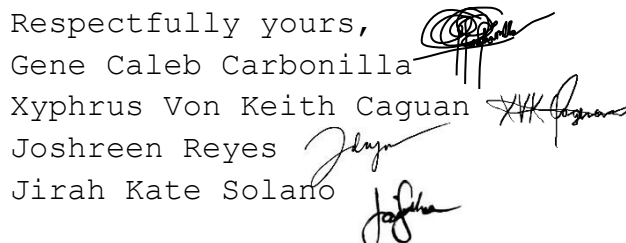 Respectfully yours,
Gene Caleb Carbonilla
Xyphrus Von Keith Caguan
Joshreen Reyes
Jirah Kate Solano